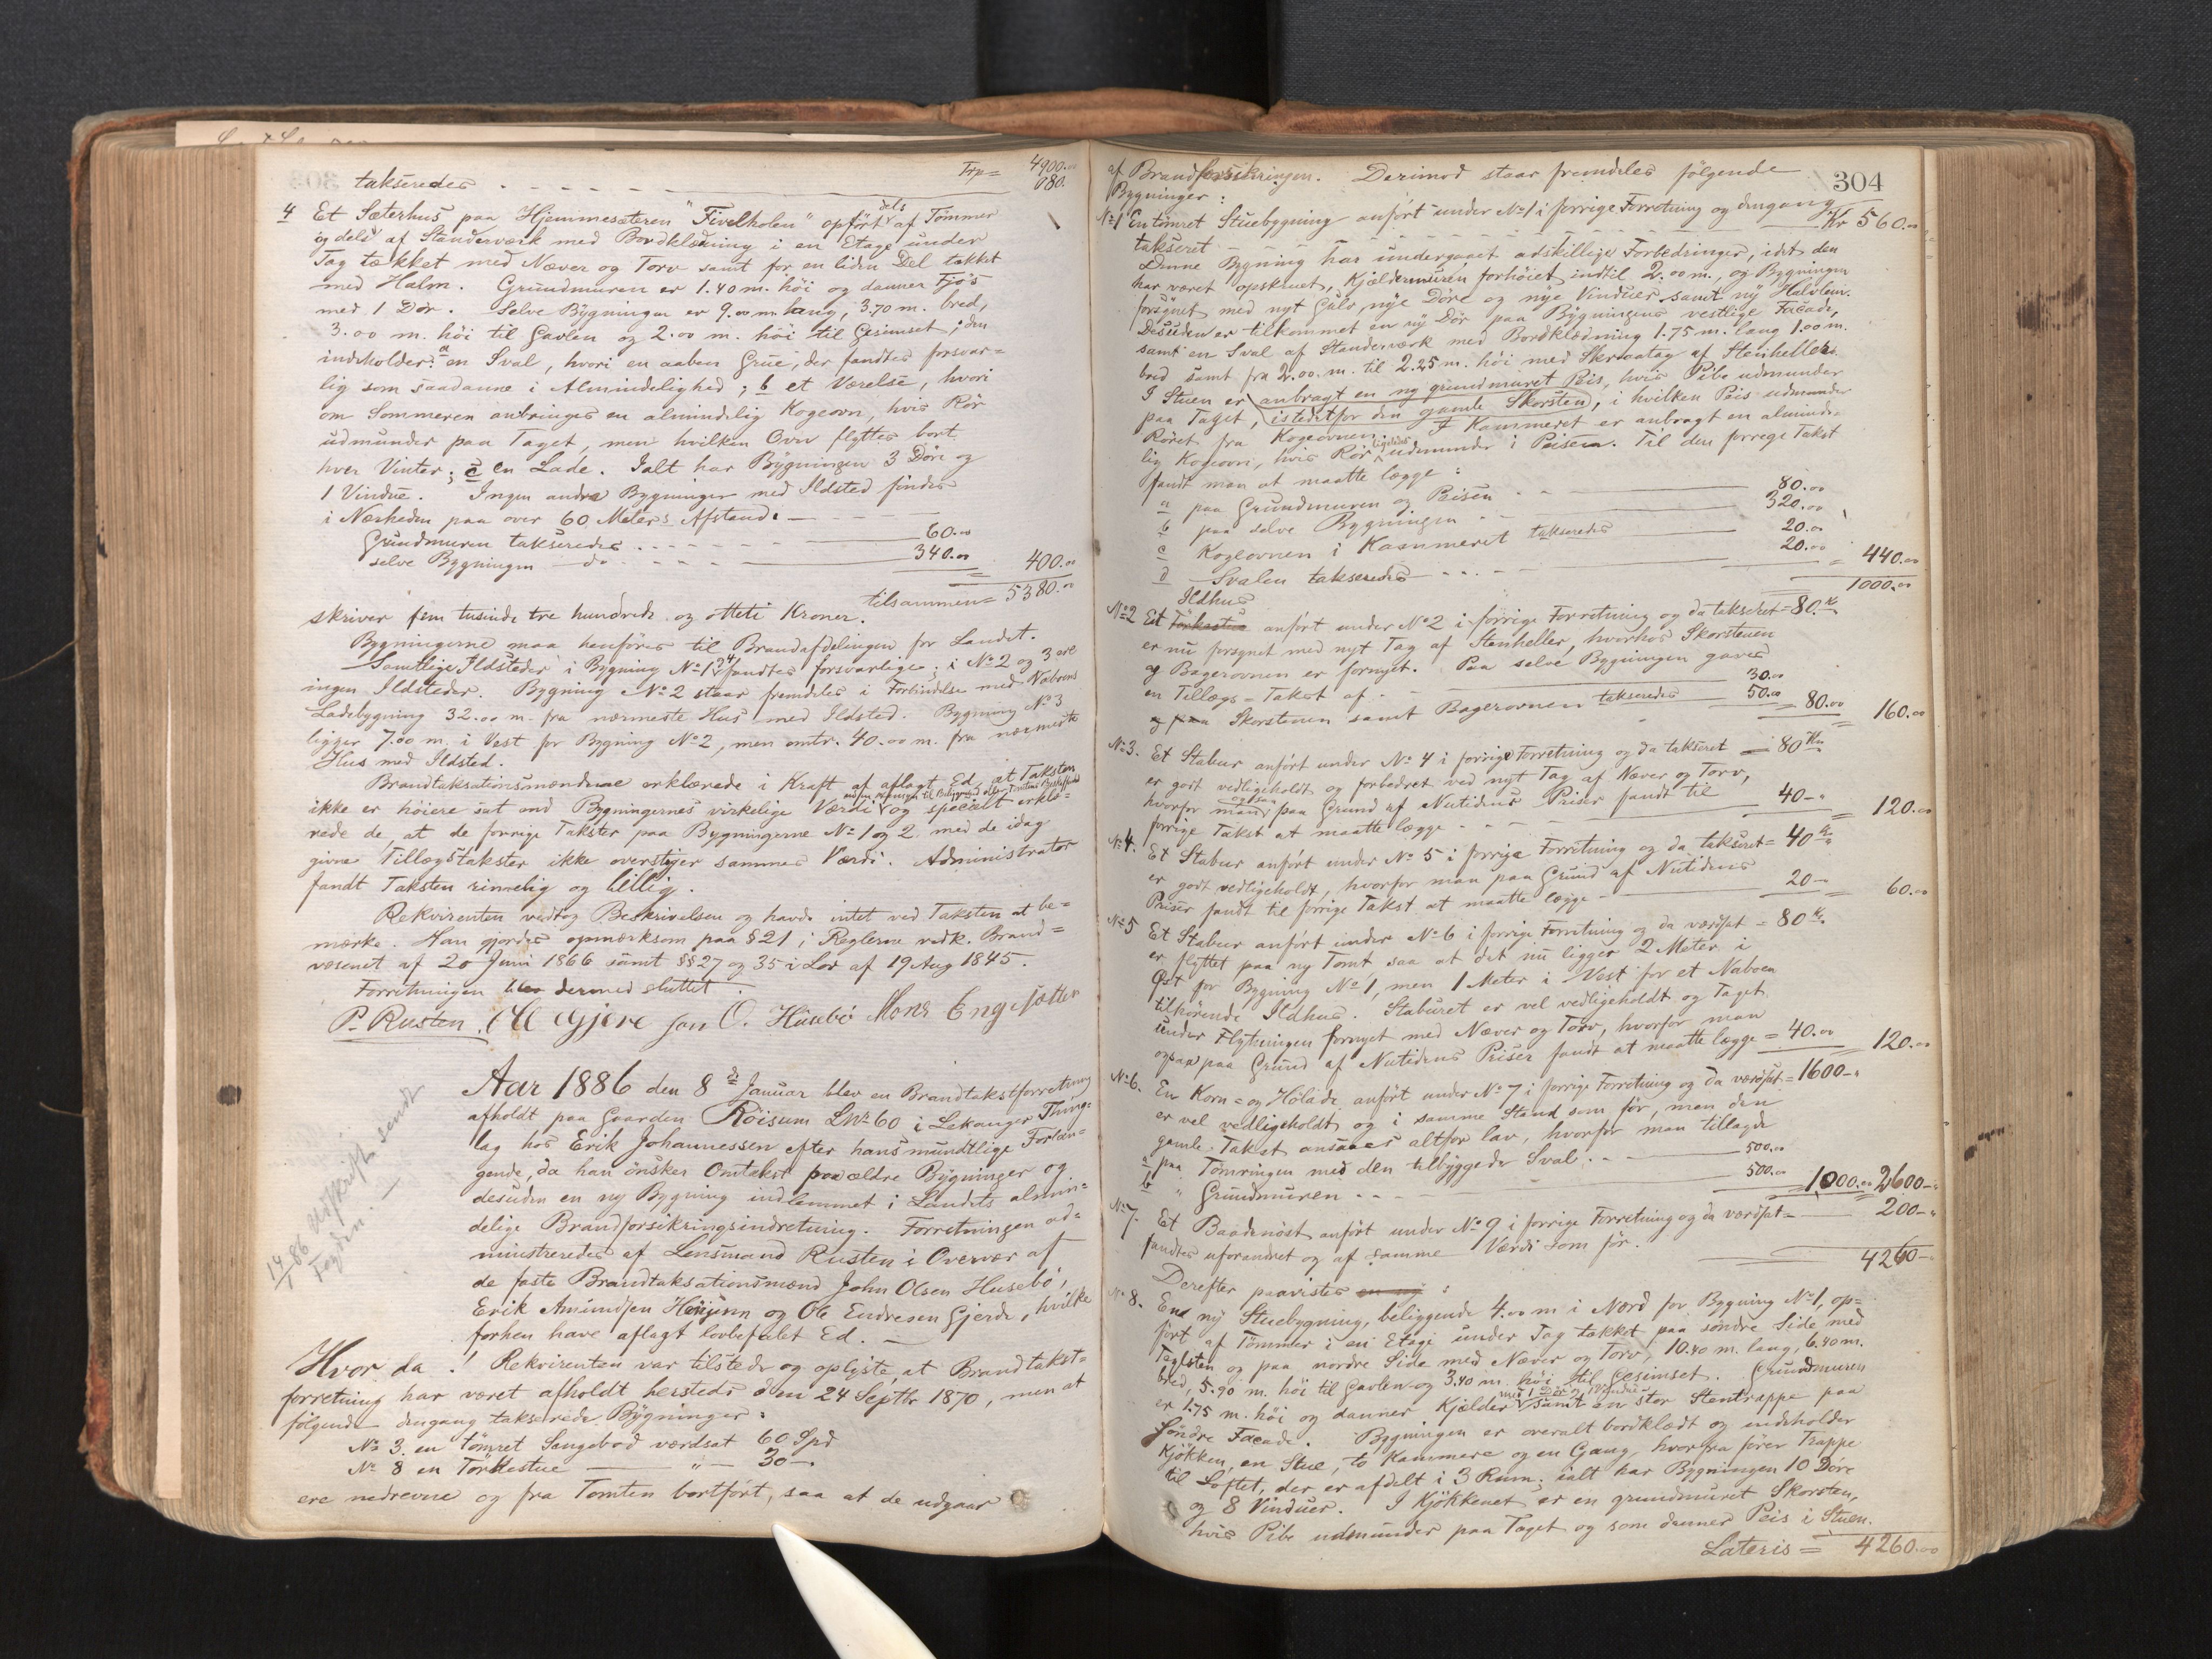 Trp = 4900.00
takseredes 080.
4 Et Sæterhus paa Hjemmesæteren "Fivelholen" opført dels af Tømmer
og dels af Standerværk med Bordklædning i en Etage under
Tag tækket med Næver og Torv samt for en liden Del tækket
med Halm. Grundmuren er 1.40 m. høi og danner Fjøs
med 1 Dør. Selve Bygningen er 9.00 m. lang, 3.70 m. bred,
3.00 m. høi til Gavlen og 2.00 m. høi til Gesimset; den
indeholder: a en Sval, hvori en aaben Grue, der fandtes forsvar=
lig som saadanne i Almindelighed; b et Værelse, hvori
om Sommeren anbringes en almindelig Kogeovn, hvis Rør
udmunder paa Taget, men hvilken Ovn flyttes bort
hver Vinter; c en Lade. Ialt har Bygningen 3 Døre og
1 Vindue. Ingen andre Bygninger med Ildsted findes
i Nærheden paa over 60 Meters Afstand.
Grundmuren takseredes 60.00
selve Bygningen do 340.00 = 400.00
tilsammen = 5380.00
skriver fem tusinde tre hundrede og otteti Kroner.
Bygningerne maa henføres til Brandafdelingen for Landet.
Samtlige Ildsteder i Bygning No 1 & 4 fandtes forsvarlige; i No 2 og 3 ere
ingen Ildsteder. Bygning No 2 staar fremdeles i Forbindelse med Naboens
Ladebygning 32.00 m. fra nærmeste Hus med Ildsted. Bygning No 3
ligger 7.00 m. i Vest for Bygning No 2, men omtr. 40.00 m. fra nærmeste
Hus med Ildsted.
Brandtaksationsmændene erklærede i Kraft af aflagt Ed, at Taksten
ikke er høiere sat end Bygningernes virkelige Værdi uden Hensyn til Beliggenhed eller Tomtens Beskaffenhed og specielt erklæ=
rede de, at de forrige Takster paa Bygningerne No 1 og 2 med de idag
givne Tillægstakster ikke overstiger sammes Værdi. Administrator
fandt Taksten rimelig og billig.
Rekvirenten vedtog Beskrivelsen og havde intet ved Taksten at be=
mærke. Han gjordes opmærksom paa § 21 i Reglerne vedk. Brand=
væsenet af 20 Juni 1866 samt §§ 27 og 35 i Lov af 19 Aug 1845.
Forretningen blev dermed sluttet.
P. Rusten. OE Gjerde Jon O. Husebø Mons Engesætter
Aar 1886 den 8de Januar blev en Brandtakstforretning
afholdt paa Gaarden Røisum Lnr 60 i Lekanger Thing=
lag hos Erik Johannessen efter hans mundtlige Forlan=
gende, da han ønsker Omtakst paa ældre Bygninger og
desuden en ny Bygning indlemmet i Landets almin=
delige Brandforsikringsindretning. Forretningen ad=
ministreredes af Lensmand Rusten i Overvær af
de faste Brandtaksationsmænd John Olsen Husebø,
Erik Amundsen Henjum og Ole Endresen Gjerde, hvilke
forhen have aflagt lovbefalet Ed.
14/1 86 Udskrift sendt
Fogden.
Hvor da! Rekvirenten var tilstede og oplyste, at Brandtakst=
forretning har været afholdt hersteds den 24 Septbr 1870, men at
følgende dengang takserede Bygninger:
No 3. en tømret Sengebod værdsat 60 Spd
No 8 en Tørkestue " 30 —
ere nedrevne og fra Tomten bortført, saa at de udgaar
304
af Brandforsikringen. Derimod staar fremdeles følgende
Bygninger:
No 1 En tømret Stuebygning anført under No 1 i forrige Forretning og dengang
takseret Kr 560.00
Denne Bygning har undergaaet adskillige Forbedringer, idet den
har været opskruet, Kjældermuren forhøiet indtil 2.00 m., og Bygningen
forsynet med nyt Gulv, nye Døre og nye Vinduer samt ny Halvlem.
Desuden er tilkommet en ny Dør paa Bygningens vestlige Facade,
samt en Sval af Standerværk med Bordklædning 1.75 m. lang 1.00 m.
bred samt fra 2.00 m. til 2.25 m. høi med Skraatag af Stenheller.
I Stuen er anbragt en ny grundmuret Peis, hvis Pibe udmunder
paa Taget, istedetfor den gamle Skorsten, i hvilken Peis udmunder
Røret fra Kogeovnen. I Kammeret er anbragt en alminde=
lig Kogeovn, hvis Rør ligeledes udmunder i Peisen. Til den forrige Takst
fandt man at maatte lægge:
a paa Grundmuren og Peisen 80.00
b paa selve Bygningen 320.00
c Kogeovnen i Kammeret takseredes 20.00
d Svalen takseredes 20.00 = 440.00
1000.00
No 2 Et Ildhus anført under No 2 i forrige Forretning og da takseret = 80 Kr
er nu forsynet med nyt Tag af Stenheller, hvorhos Skorstenen
og Bagerovnen er fornyet. Paa selve Bygningen gaves
en Tillægs-Takst af 30.00
og paa Skorstenen samt Bagerovnen takseredes 50.00 = 80.00 160.00
No 3. Et Stabur anført under No 4 i forrige Forretning og da takseret = 80 Kr
er godt vedligeholdt og forbedret ved nyt Tag af Næver og Torv,
hvorfor man ogsaa paa Grund af Nutidens Priser fandt til
forrige Takst at maatte lægge 40 — = 120.00
No 4. Et Stabur anført under No 5 i forrige Forretning og da takseret = 40 Kr.
er godt vedligeholdt, hvorfor man paa Grund af Nutidens
Priser fandt til forrige Takst at maatte lægge 20 — = 60.00
No 5 Et Stabur anført under No 6 i forrige Forretning og da værdsat = 80 Kr.
er flyttet paa ny Tomt saa at det nu ligger 2 Meter i
Øst for Bygning No 1, men 1 Meter i Vest for et Naboen
tilhørende Ildhus. Staburet er vel vedligeholdt og Taget
under Flytningen fornyet med Næver og Torv, hvorfor man
ogsaa paa Grund af Nutidens Priser fandt at maatte lægge = 40.00 = 120.00
No 6. En Korn= og Hølade anført under No 7 i forrige Forretning og da værdsat = 1600 —
er vel vedligeholdt og i samme Stand som før, men den
gamle Takst ansaaes altfor lav, hvorfor man tillagde
a paa Tømringen med den tilbyggede Sval 500.00
b " Grundmuren 500.00 = 1000.00 2600 —
No 7. Et Baadenøst anført under No 9 i forrige Forretning og da værdsat = 200 —
fandtes uforandret og af samme Værdi som før.
4260 —
Derefter paavistes en ny:
No 8. En ny Stuebygning, beliggende 4.00 m i Nord for Bygning No 1, op=
ført af Tømmer i en Etage under Tag tækket paa søndre Side med
Teglsten og paa nordre Side med Næver og Torv, 10.40 m. lang, 6.40 m.
bred, 5.90 m. høi til Gavlen og 3.40 m. høi til Gesimset. Grundmuren
er 1.75 m. høi og danner Kjælder med 1 Dør og 1 Vindue samt en stor Stentrappe paa
søndre Facade. Bygningen er overalt bordklædt og indeholder
Kjøkken, en Stue, to Kammere og en Gang, hvorfra fører Trappe
til Loftet, der er afdelt i 3 Rum. ialt har Bygningen 10 Døre
og 8 Vinduer. I Kjøkkenet er en grundmuret Skorsten,
hvis Pibe udmunder paa Taget og som danner Peis i Stuen.
Lateris = 4260.00